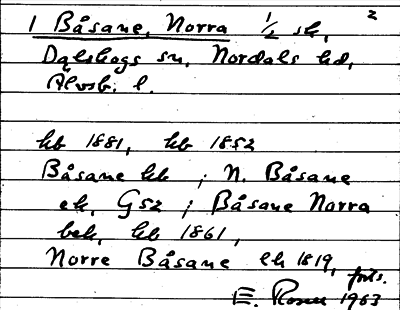 2
1 Båsane, Norra 1/2 sk,
Dalskogs sn, Nordals hd,
Älvsb. l.
hb 1881, hb 1852
Båsane hb ; N. Båsane
ek, G52 ; Båsane Norra
bek, hb 1861,
Norre Båsane lh 1819,
forts.
E. Rosen 1963